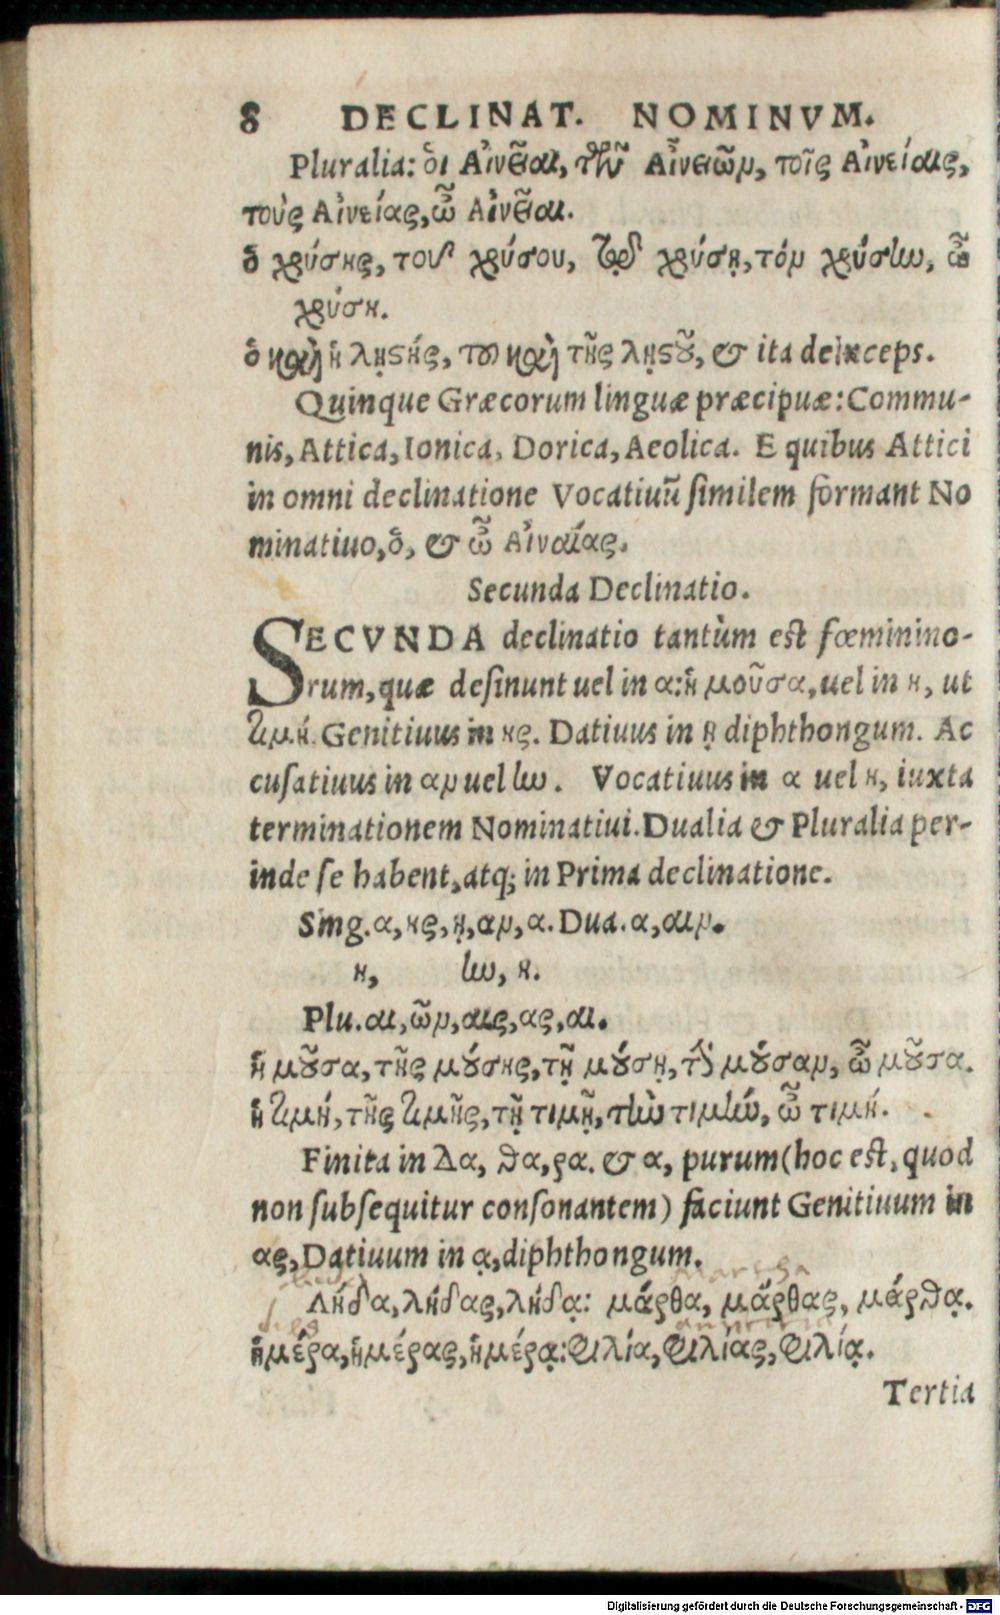 8 DECLINAT. NOMINVM.
Pluralia: ὁι Αἰνεῖαι, τῶν Αἰνειῶν, τοῖς Αἰνείαις,
τοὺς Αἰνείας, ὦ Αἰνεῖαι.
ὁ χρύσης, τοῦ χρύσου, τῷ χρύσῃ, τὸν χρύσην, ὦ
χρύση.
ὁ καὶ ἡ λῃστής, τοῦ καὶ τῆς λῃστοῦ, & ita deinceps.
Quinque Græcorum linguæ præcipuæ: Commu-
nis, Attica, Ionica, Dorica, Aeolica. E quibus Attici
in omni declinatione Vocatiuū similem formant No
minatiuo, ὁ, & ὦ Αἰναίας.
Secunda Declinatio.
SECVNDA declinatio tantùm est fœminino-
rum, quæ desinunt uel in α: ἡ μοῦσα, uel in η, ut
τιμή. Genitiuus in ης. Datiuus in ῃ diphthongum. Ac
cusatiuus in αν uel ην. Vocatiuus in α uel η, iuxta
terminationem Nominatiui. Dualia & Pluralia per-
inde se habent, atq; in Prima declinatione.
Sing. α, ης, ῃ, αν, α. Dua. α, αιν.
η, ην, η.
Plu. αι, ῶν, αις, ας, αι.
ἡ μοῦσα, τῆς μούσης, τῇ μούσῃ, τὴν μούσαν, ὦ μοῦσα.
ἡ τιμή, τῆς τιμῆς, τῇ τιμῇ, τὴν τιμήν, ὦ τιμή.
Finita in δα, θα, ρα. & α, purum (hoc est, quod
non subsequitur consonantem) faciunt Genitiuum in
ας, Datiuum in ᾳ, diphthongum.
Λήδα, λήδας, λήδᾳ: μάρθα, μάρθας, μάρθᾳ.
ἡμέρα, ἡμέρας, ἡμέρᾳ: φιλία, φιλίας, φιλίᾳ.
Tertia
Digitalisierung gefördert durch die Deutsche Forschungsgemeinschaft - DFG